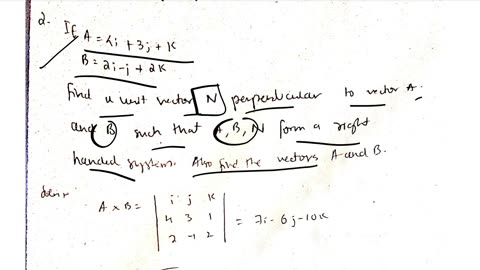 2. If A = 4i + 3j + k
B = 2i - j + 2k
find a unit vector N perpendicular to vector A
and B such that A, B, N form a right
handed system. Also find the vectors A and B.
A x B = | i j k |
| 4 3 1 | = 7i - 6j - 10k
| 2 -1 2 |